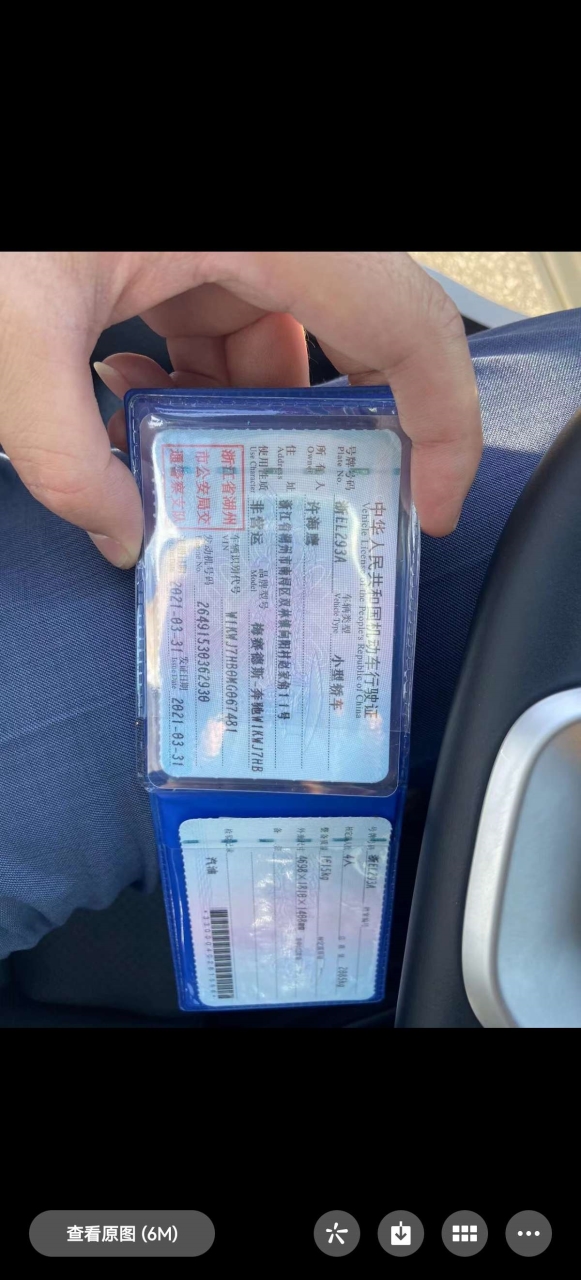 中华人民共和国机动车行驶证
Vehicle License of the People's Republic of China
号牌号码 浙EL293A 车辆类型 小型轿车
Plate No. Vehicle Type
所有人 许海鹰
Owner
住址 浙江省湖州市南浔区双林镇向阳村赵家兜11号
Address
使用性质 非营运 品牌型号 梅赛德斯-奔驰W1KWJ7HB
Use Character Model
浙江省湖州
市公安局交
通警察支队
车辆识别代号 W1KWJ7HB0MG067481
VIN
发动机号码 26491530362930
Engine No.
2021-03-31 发证日期 2021-03-31
Issue Date
号牌号码 浙EL293A 档案编号
4人 总质量 2085kg
整备质量 1615kg
外廓尺寸 4698×1810×1408mm
备注
检验记录
汽油
查看原图 (6M)